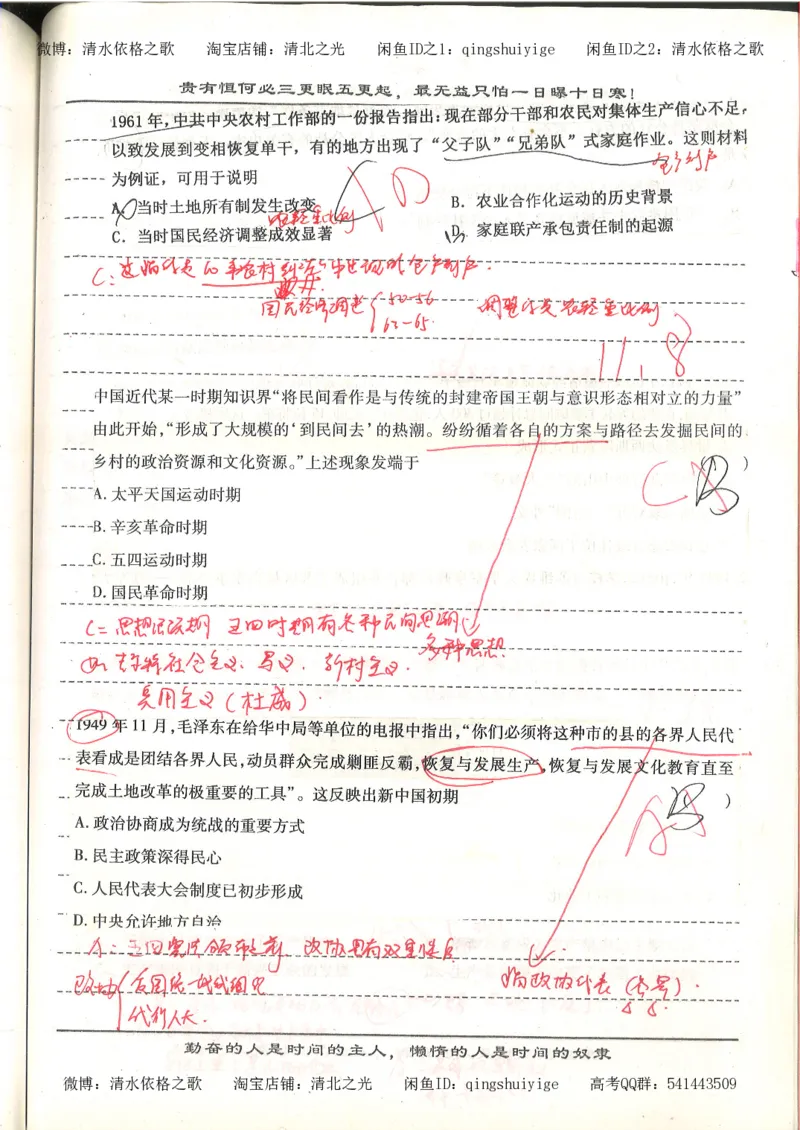 微博：清水依格之歌 淘宝店铺：清北之光 闲鱼ID之1：qingshuiyige 闲鱼ID之2：清水依格之歌
贵有恒何必三更眠五更起，最无益只怕一日曝十日寒！
1961年，中共中央农村工作部的一份报告指出：现在部分干部和农民对集体生产信心不足，
以致发展到变相恢复单干，有的地方出现了“父子队”“兄弟队”式家庭作业。这则材料
包产到户
为例证，可用于说明
A. 当时土地所有制发生改变 B. 农业合作化运动的历史背景
农轻重比例
C. 当时国民经济调整成效显著 D. 家庭联产承包责任制的起源
国民经济调整 50-56
62-65
调整农轻重比例
11.8
中国近代某一时期知识界“将民间看作是与传统的封建帝国王朝与意识形态相对立的力量”
由此开始，“形成了大规模的‘到民间去’的热潮。纷纷循着各自的方案与路径去发掘民间的
乡村的政治资源和文化资源。”上述现象发端于 （ ）
C
A.太平天国运动时期
B.辛亥革命时期
C.五四运动时期
D.国民革命时期
五四时期有各种民间思潮
多种思想
新村主义.
实用主义（杜威）
1949年11月，毛泽东在给华中局等单位的电报中指出，“你们必须将这种市的县的各界人民代
表看成是团结各界人民，动员群众完成剿匪反霸，恢复与发展生产，恢复与发展文化教育直至
完成土地改革的极重要的工具”。这反映出新中国初期 ）
A.政治协商成为统战的重要方式
B.民主政策深得民心
C.人民代表大会制度已初步形成
D.中央允许地方自治
政协
代行人大.
指政协代表
勤奋的人是时间的主人，懒惰的人是时间的奴隶
微博：清水依格之歌 淘宝店铺：清北之光 闲鱼ID：qingshuiyige 高考QQ群：541443509